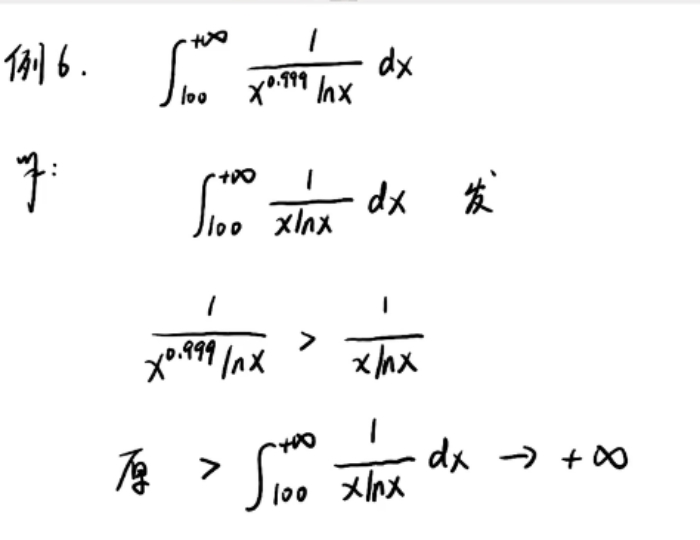 例6. ∫₁₀₀^{+∞} 1/(x^{0.999} ln x) dx
∫₁₀₀^{+∞} 1/(x ln x) dx 发
1/(x^{0.999} ln x) > 1/(x ln x)
原 > ∫₁₀₀^{+∞} 1/(x ln x) dx → +∞